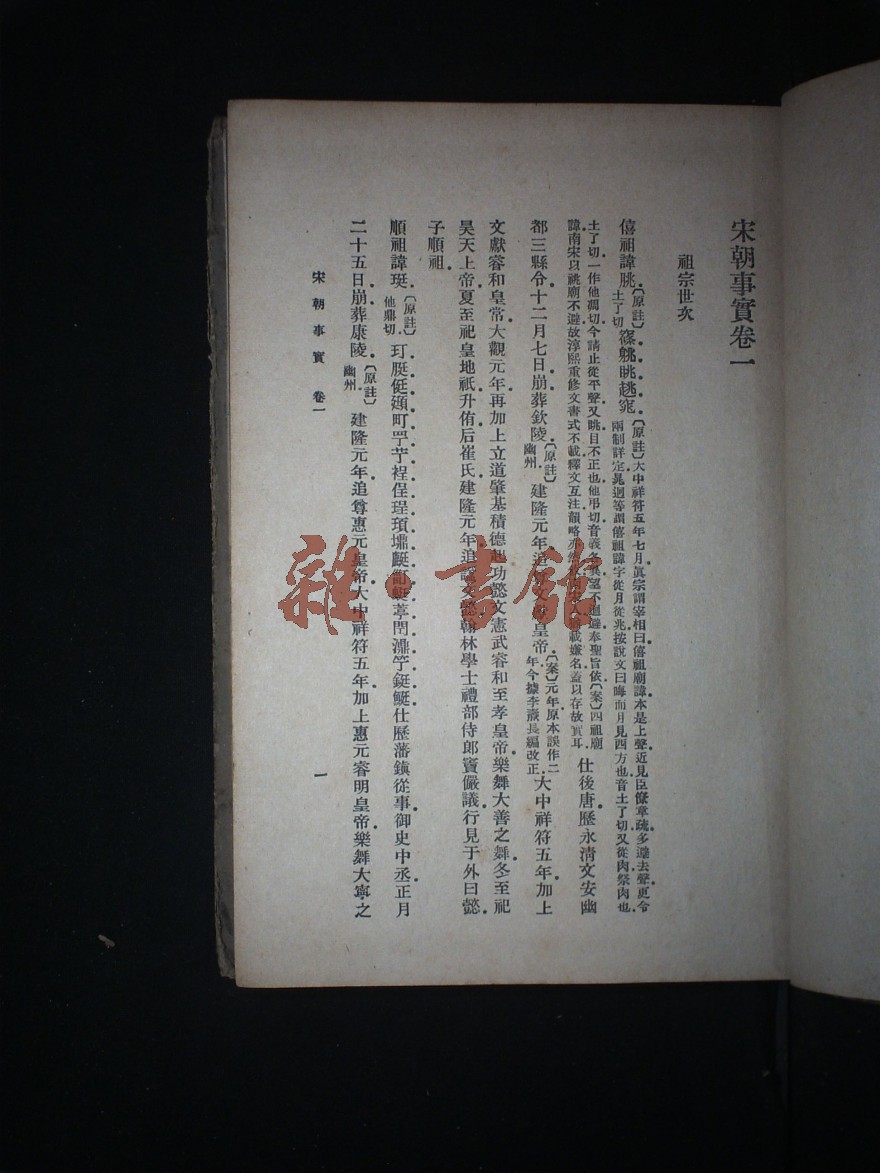 宋朝事實卷一
祖宗世次
僖祖諱朓〔原註〕土了切篠䠷眺趒窕〔原註〕大中祥符五年七月眞宗謂宰相曰僖祖廟諱本是上聲近見臣僚章疏多避去聲更令兩制詳定晁迥等謂僖祖諱字從月從兆按說文曰晦而月見西方也音土了切又從肉祭肉也
土了切一作他凋切今請止從平聲又眺目不正也他弔切音義各異望不迴避奉聖旨依〔案〕四祖廟諱南宋以祧廟不避故淳熙重修文書式不載釋文互注韻略亦載嫌名蓋以存故實耳仕後唐歷永清文安幽
都三縣令十二月七日崩葬欽陵〔原註〕幽州建隆元年追尊文獻皇帝〔案〕元年原本誤作二年今據李燾長編改正大中祥符五年加上
文獻睿和皇帝大觀元年再加上立道肇基積德起功懿文憲武睿和至孝皇帝樂舞大善之舞冬至祀
昊天上帝夏至祀皇地祇升侑后崔氏建隆元年追諡文懿翰林學士禮部侍郎竇儼議行見于外曰懿
子順祖
順祖諱珽〔原註〕他鼎切玎脡侹頲町甼艼裎侹珵頊壚艇蜓葶閅濎艼鋌艇仕歷藩鎮從事御史中丞正月
二十五日崩葬康陵〔原註〕幽州建隆元年追尊惠元皇帝大中祥符五年加上惠元睿明皇帝樂舞大寧之
宋朝事實 卷一
一
雜·書館